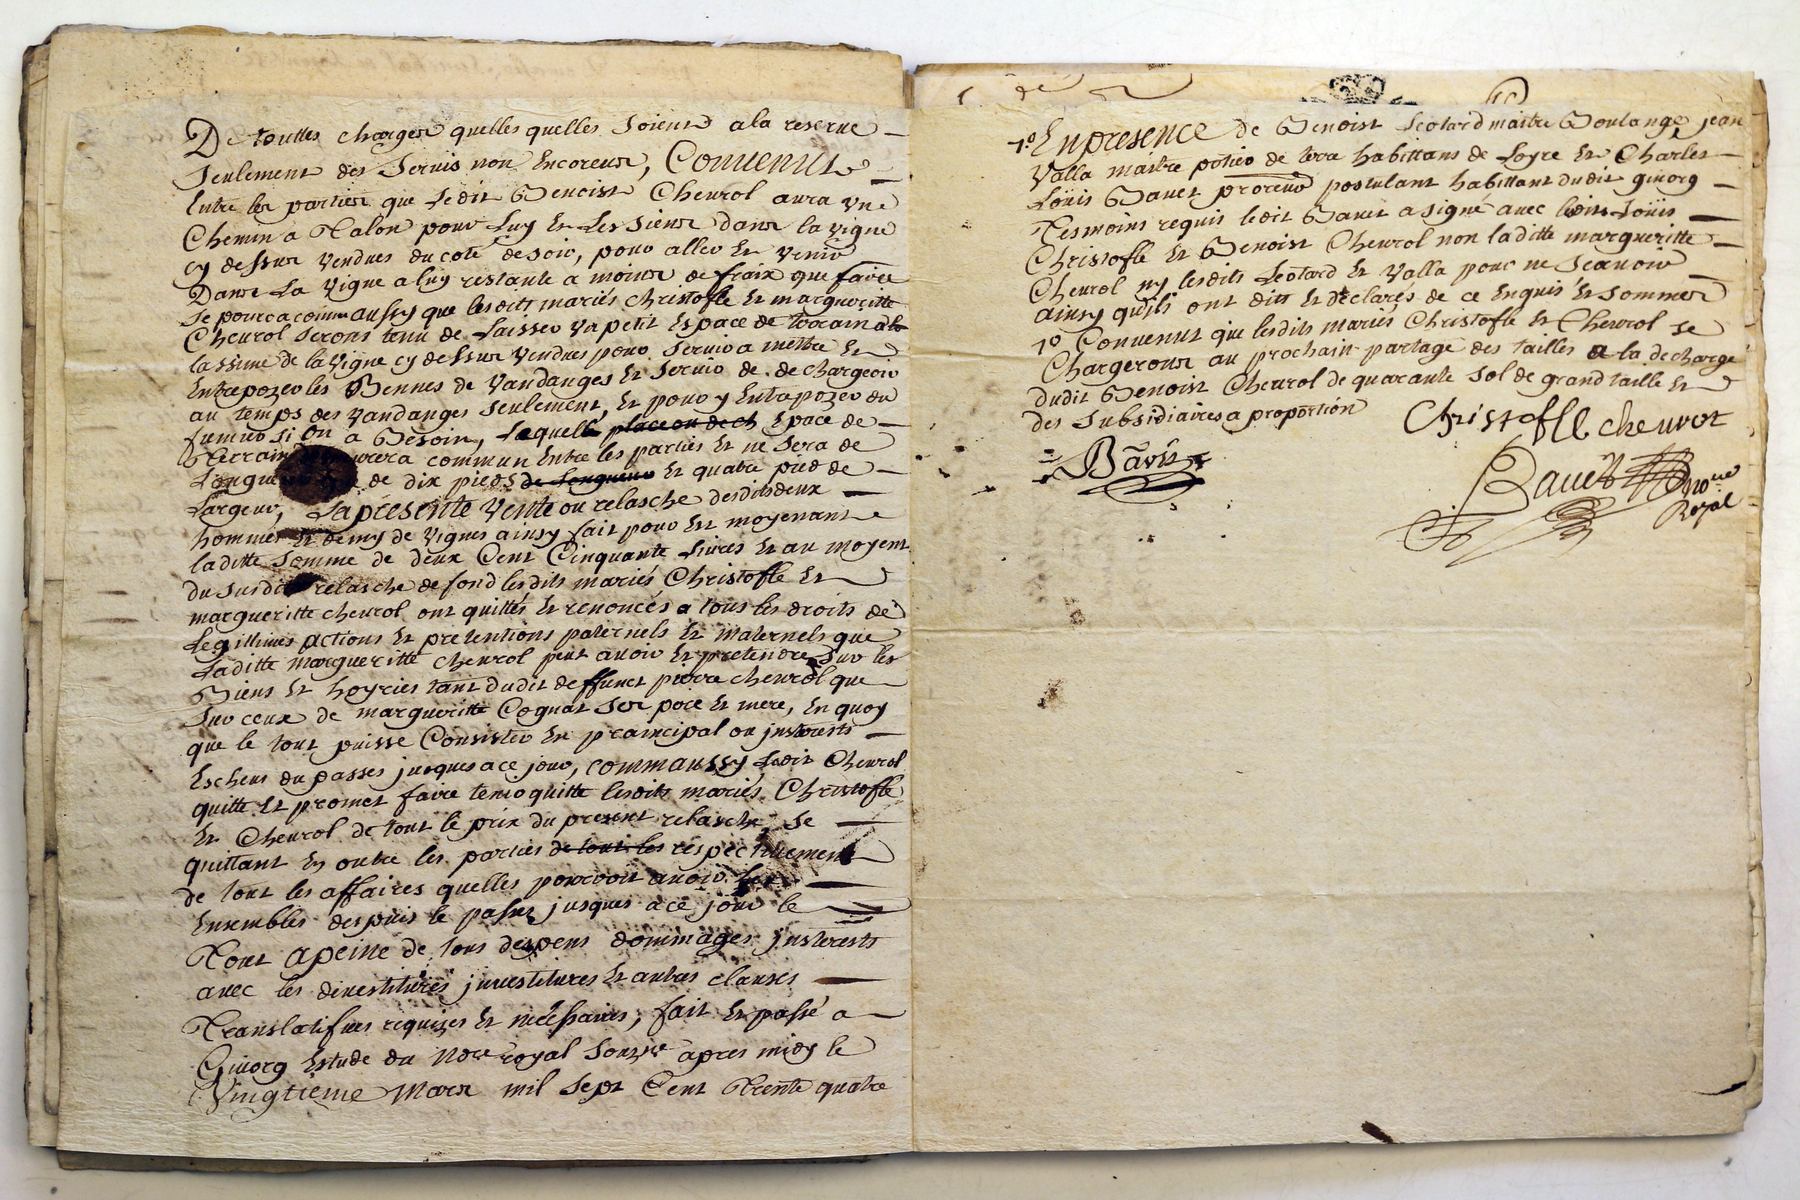 De touttes charges quelles quelles soient a la reserve
seulement des servis non encoreus, Convenut
Entre les parties que ledit Benoist Cheurol aura une
Chemin a Talon pour Luy et Les siens dans la vigne
cy dessus vendues du coté de soir, pour aller et venir
Dans La vigne a luy restante a moins de fraix que faire
se pourra comm aussy que lesdits mariés Christofle et margueritte
Cheurol serons tenu de Laisser un petit Espace de terrain a la
lassime de la vigne cy dessus vendues pour servir a mettre et
Entrepozer les Bennes de vandanges et servir de de chargeoir
au temps des vandanges seulement, et pour y Entrapozer du
fumier si on a Besoin, Laquelle place ou de ch Espace de
Terrain commun Entre les parties et ne sera de
Longueur de dix pieds de Longueur et quatre pied de
Largeur, La presente vente ou relasche desdits deux
hommes et demy de vignes ainsy fait pour et moyenant
laditte somme de deux Cent Cinquante Livres et au moyent
du susdit relasche de fond lesdits mariés Christofle et
margueritte cheurol ont quittés et renoncés a tous les droits de
Legittimes actions et pretentions paternels et maternels que
Laditte margueritte cheurol peut avoir et pretendre sur les
Biens et hoyries tant dudit deffunct pierre cheurol que
sur ceux de margueritte Cognat ses pere et mere, En quoy
que le tout puisse Consister En praincipal ou jnterests
Escheus du passes jusques a ce jour, comm aussy Ledit Cheurol
quitte et promet faire tenir quitte lesdits mariés Christofle
et Cheurol de tout le prix du present relasche, se
quittant En outre les parties de tout les respectivement
de tout les affaires quelles pourroit avoir
Ensembles despuis le passez jusques a ce jour le
Tout a peine de tous despens dommages jnterests
avec les devestitures jnvestitures et autres clauses
Translatifves requizes et necessaires, fait et passé a
Givorg Estude du Nore royal souzne apres midy le
Vingtieme Mars mil sept Cent Trente quatre
1º En presence de Benoist Leotard maitre Boulange, jean
Valla maitre potier de terre habittans de Loyre et Charles
Loüis Bavet procreur postulant habittant dudit givorg
Tesmoins requis ledit Bavet a signé avec lesdits Loüis
Christofle et Benoist Cheurol non laditte margueritte
Cheurol ny lesdits Leotard et Valla pour ne scavoir
ainsy qu'ils ont ditt et declarés de ce Enquis et sommer
1º Convenut que lesdits mariés Christofle et Cheurol se
Chargerons au prochain partage des tailles a la decharge
dudit Benoist Cheurol de quarante sol de grand taille et
des subsidiaires a proportion
Christofle cheurot
Royal